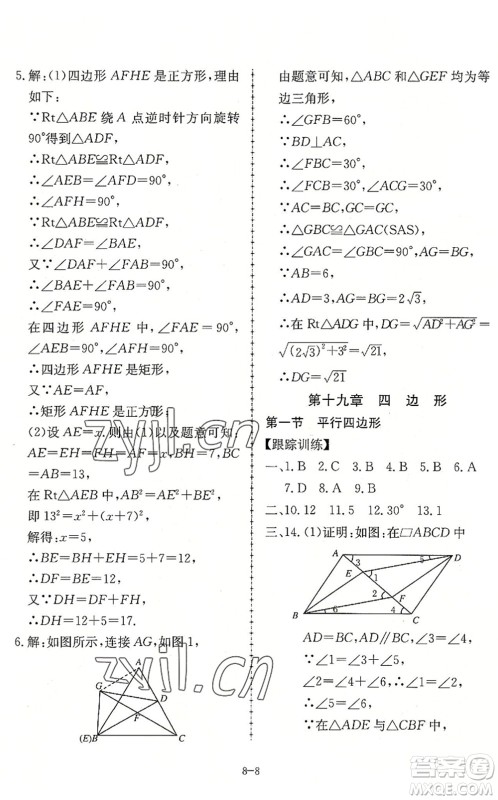 5.解:(1)四边形 AFHE 是正方形,理由
如下:
∵Rt△ABE 绕 A 点逆时针方向旋转
90°得到△ADF,
∴Rt△ABE≌Rt△ADF,
∴∠AEB=∠AFD=90°,
∴∠AFH=90°,
∵Rt△ABE≌Rt△ADF,
∴∠DAF=∠BAE,
又∵∠DAF+∠FAB=90°,
∴∠BAE+∠FAB=90°,
∴∠FAE=90°,
在四边形 AFHE 中,∠FAE=90°,
∠AEB=90°,∠AFH=90°,
∴四边形 AFHE 是矩形,
又∵AE=AF,
∴矩形 AFHE 是正方形;
(2)设 AE=x,则由(1)以及题意可知:
AE=EH=FH=AF=x,BH=7,
AB=13,
在 Rt△AEB 中,AB²=AE²+BE²,
即 13²=x²+(x+7)²,
解得:x=5,
∴BE=BH+EH=5+7=12,
∴DF=BE=12,
又∵DH=DF+FH,
∴DH=12+5=17.
6.解:如图所示,连接 AG,如图 1,
A
G
D
F
(E)B
C
由题意可知,△ABC 和△GEF 均为等
边三角形,
∴∠GFB=60°,
∵BD⊥AC,
∴∠FBC=30°,
∴∠FCB=30°,∠ACG=30°,
∵AC=BC,GC=GC,
∴△GBC≌△GAC(SAS),
∴∠GAC=∠GBC=90°,AG=BG,
∵AB=6,
∴AD=3,AG=BG=2√3,
∴在 Rt△ADG 中,DG=√(AD²+AG²)=
√((2√3)²+3²)=√21,
∴DG=√21
第十九章 四 边 形
第一节 平行四边形
【跟踪训练】
一、1.B 2.D 3.B 4.D 5.B 6.A
7.D 8.A 9.A
二、10.12 11.5 12.30° 13.1
三、14.(1)证明:如图:在□ABCD 中
A
3
5
D
E
1
2
F
B
6
4
C
AD=BC,AD∥BC,
∴∠3=∠4,
∵∠1=∠3+∠5,∠2=∠4+∠6
又∵∠1=∠2
∴∠5=∠6
∵在△ADE 与△CBF 中
8-8
zyjl.cn
zyjl.cn